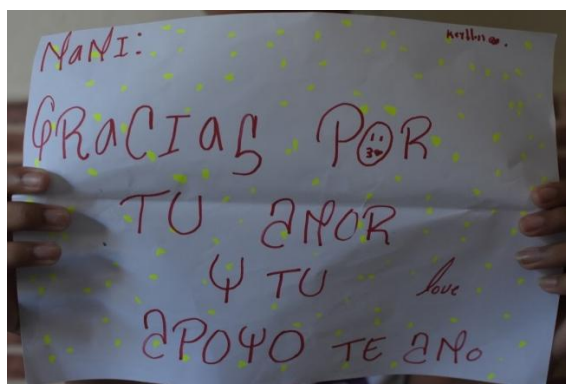 NaNI:
GRaCIas POR
TU aMOR
Y TU love
aPOYO TE aMo